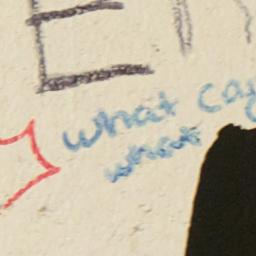 E
what cay
what